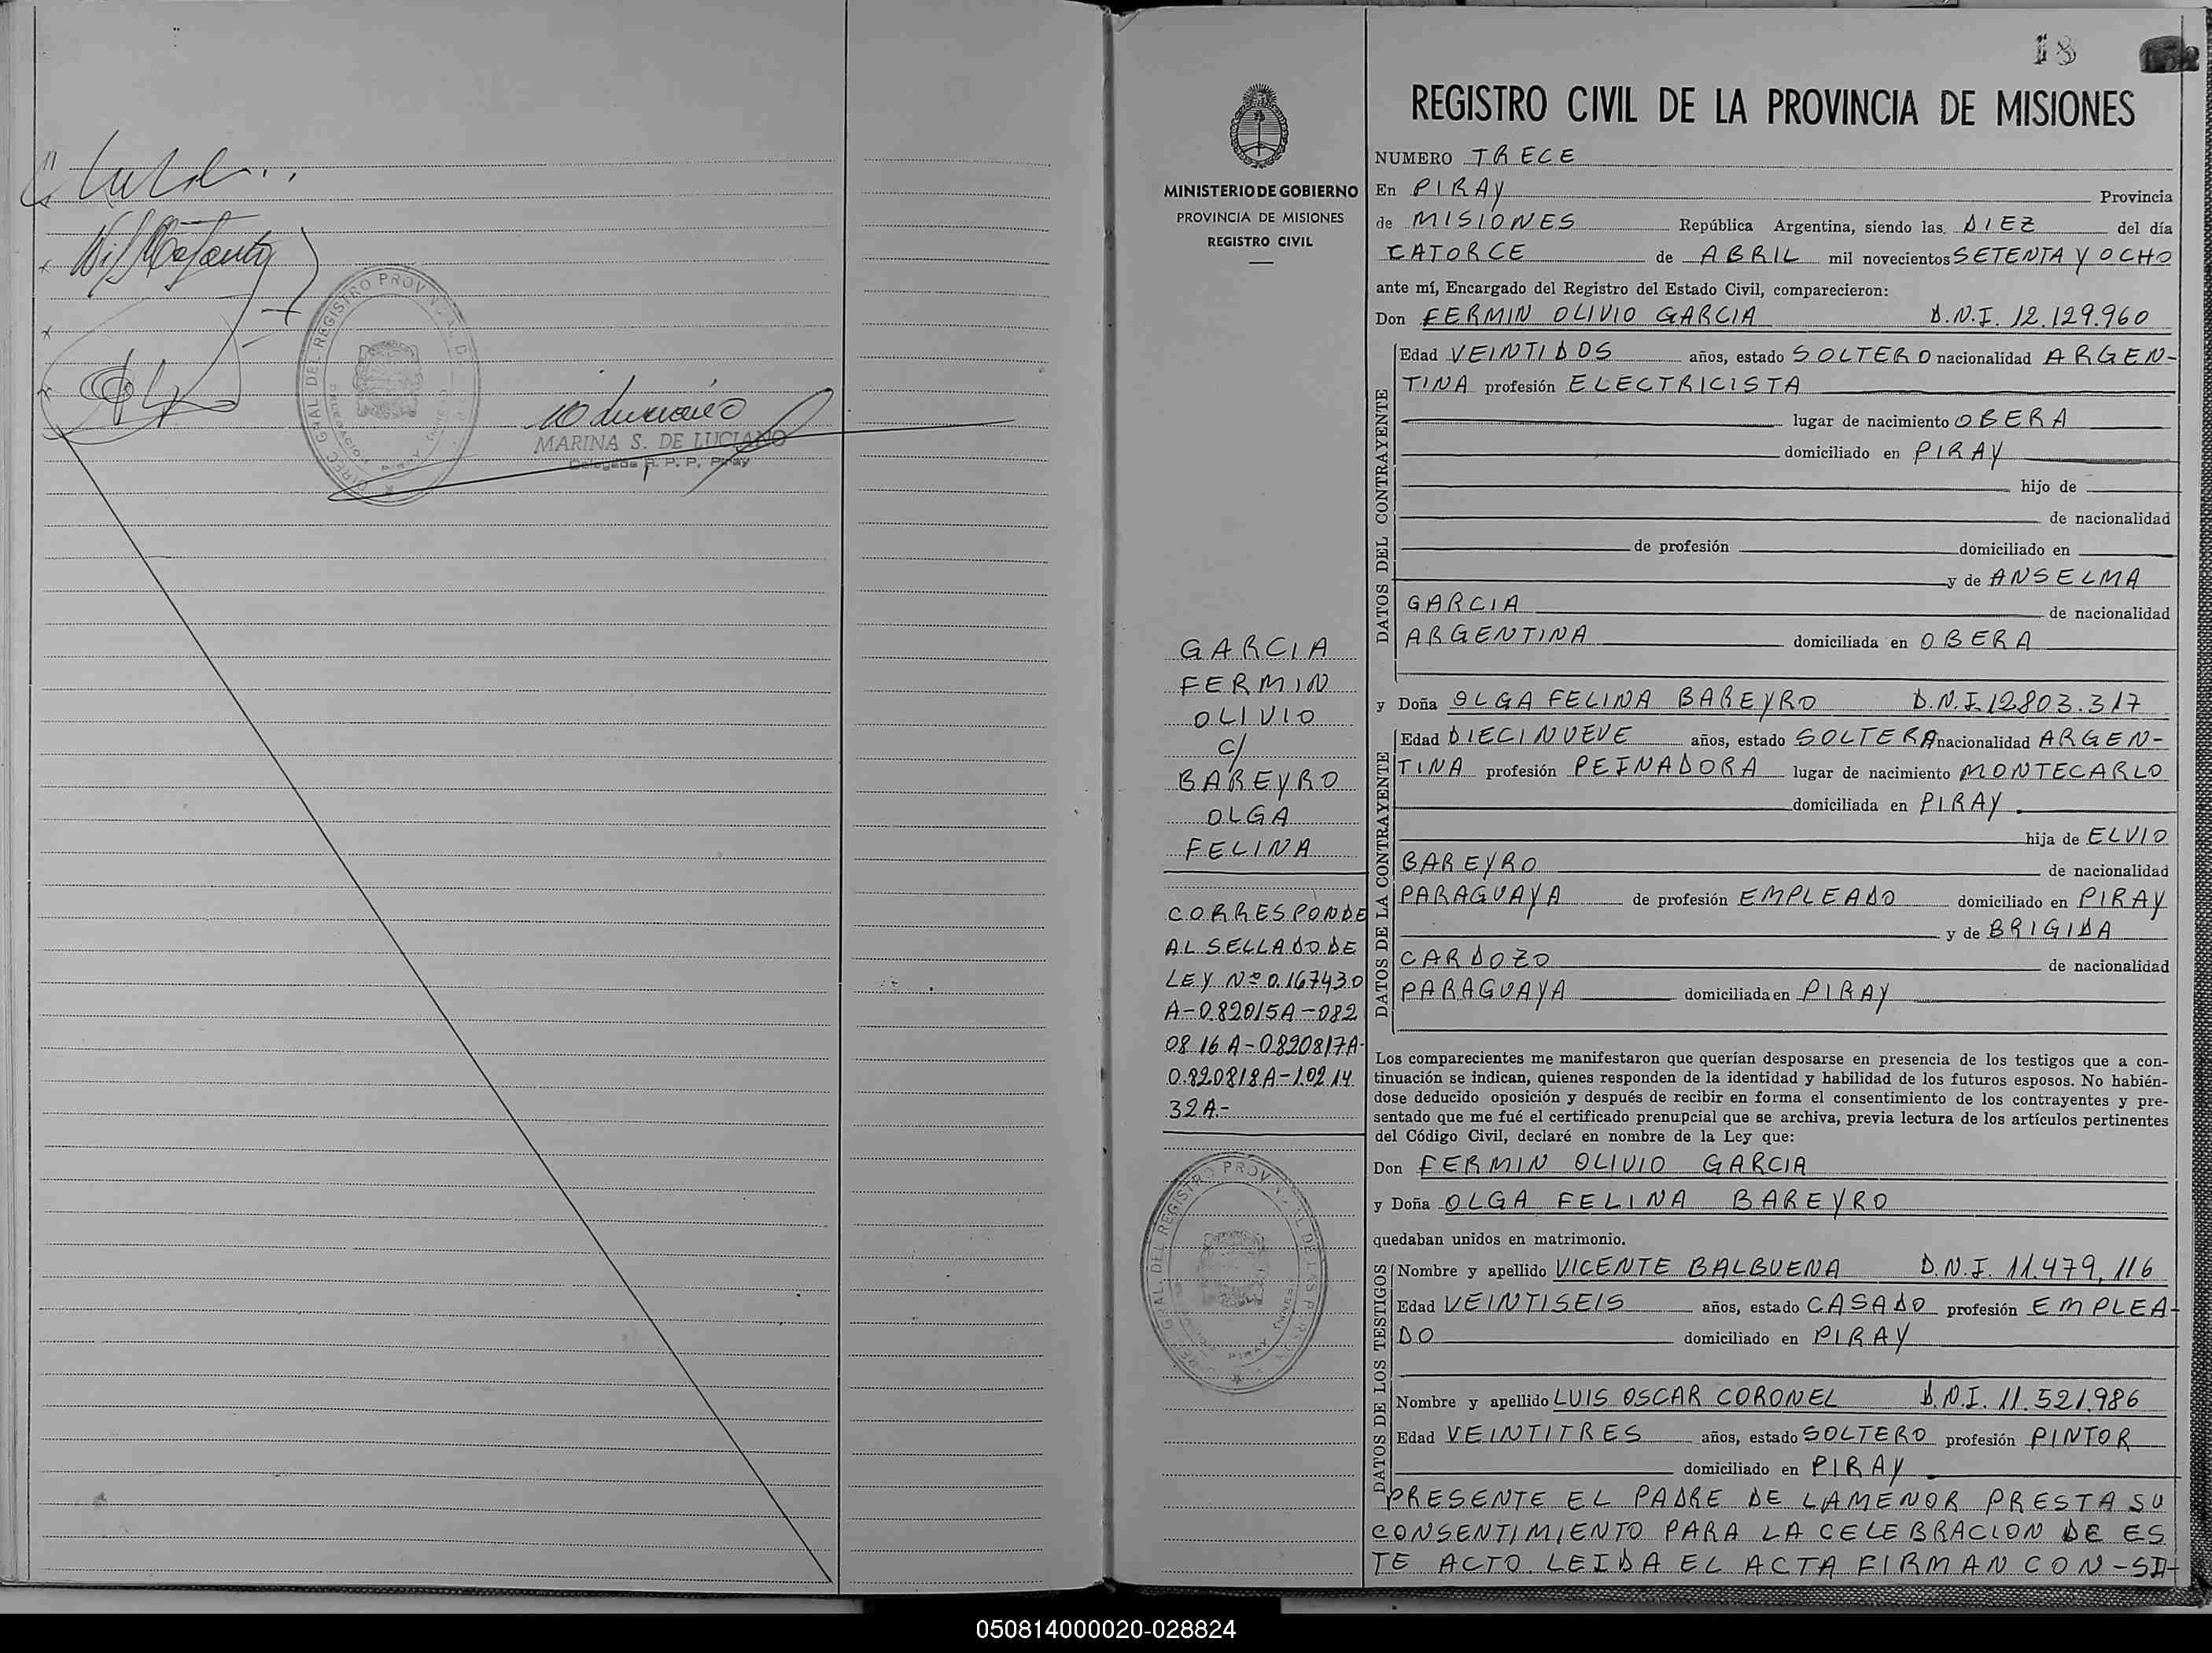 DIREC. GRAL. DEL REGISTRO PROV
PIRAY
MARINA S. DE LUCIANO
Delegada R. P. P. Piray
18
REGISTRO CIVIL DE LA PROVINCIA DE MISIONES
MINISTERIO DE GOBIERNO
PROVINCIA DE MISIONES
REGISTRO CIVIL
GARCIA
FERMIN
OLIVIO
c/
BAREYRO
OLGA
FELINA
CORRESPONDE
AL SELLADO DE
LEY Nº 0.167430
A-082015A-082
08 16 A-0820817A-
0.820818A-10214
32A.-
NUMERO TRECE
En PIRAY Provincia
de MISIONES República Argentina, siendo las DIEZ del día
CATORCE de ABRIL mil novecientos SETENTA Y OCHO
ante mí, Encargado del Registro del Estado Civil, comparecieron:
Don FERMIN OLIVIO GARCIA D.N.I. 12.129.960
DATOS DEL CONTRAYENTE
Edad VEINTIDOS años, estado SOLTERO nacionalidad ARGEN-
TINA profesión ELECTRICISTA
lugar de nacimiento OBERA
domiciliado en PIRAY
hijo de
de nacionalidad
de profesión domiciliado en
y de ANSELMA
GARCIA de nacionalidad
ARGENTINA domiciliada en OBERA
y Doña OLGA FELINA BAREYRO D.N.I. 12.803.317
DATOS DE LA CONTRAYENTE
Edad DIECINUEVE años, estado SOLTERA nacionalidad ARGEN-
TINA profesión PEINADORA lugar de nacimiento MONTECARLO
domiciliada en PIRAY.
hija de ELVIO
BAREYRO de nacionalidad
PARAGUAYA de profesión EMPLEADO domiciliado en PIRAY
y de BRIGIDA
CARDOZO de nacionalidad
PARAGUAYA domiciliada en PIRAY
Los comparecientes me manifestaron que querían desposarse en presencia de los testigos que a con-
tinuación se indican, quienes responden de la identidad y habilidad de los futuros esposos. No habién-
dose deducido oposición y después de recibir en forma el consentimiento de los contrayentes y pre-
sentado que me fué el certificado prenupcial que se archiva, previa lectura de los artículos pertinentes
del Código Civil, declaré en nombre de la Ley que:
Don FERMIN OLIVIO GARCIA
y Doña OLGA FELINA BAREYRO
quedaban unidos en matrimonio.
DATOS DE LOS TESTIGOS
Nombre y apellido VICENTE BALBUENA D.N.I. 11.479,116
Edad VEINTISEIS años, estado CASADO profesión EMPLEA-
DO domiciliado en PIRAY
Nombre y apellido LUIS OSCAR CORONEL D.N.I. 11.521.986
Edad VEINTITRES años, estado SOLTERO profesión PINTOR
domiciliado en PIRAY.
PRESENTE EL PADRE DE LAMENOR PRESTA SU
CONSENTIMIENTO PARA LA CELEBRACION DE ES
TE ACTO. LEIDA EL ACTA FIRMAN CON-
050814000020-028824